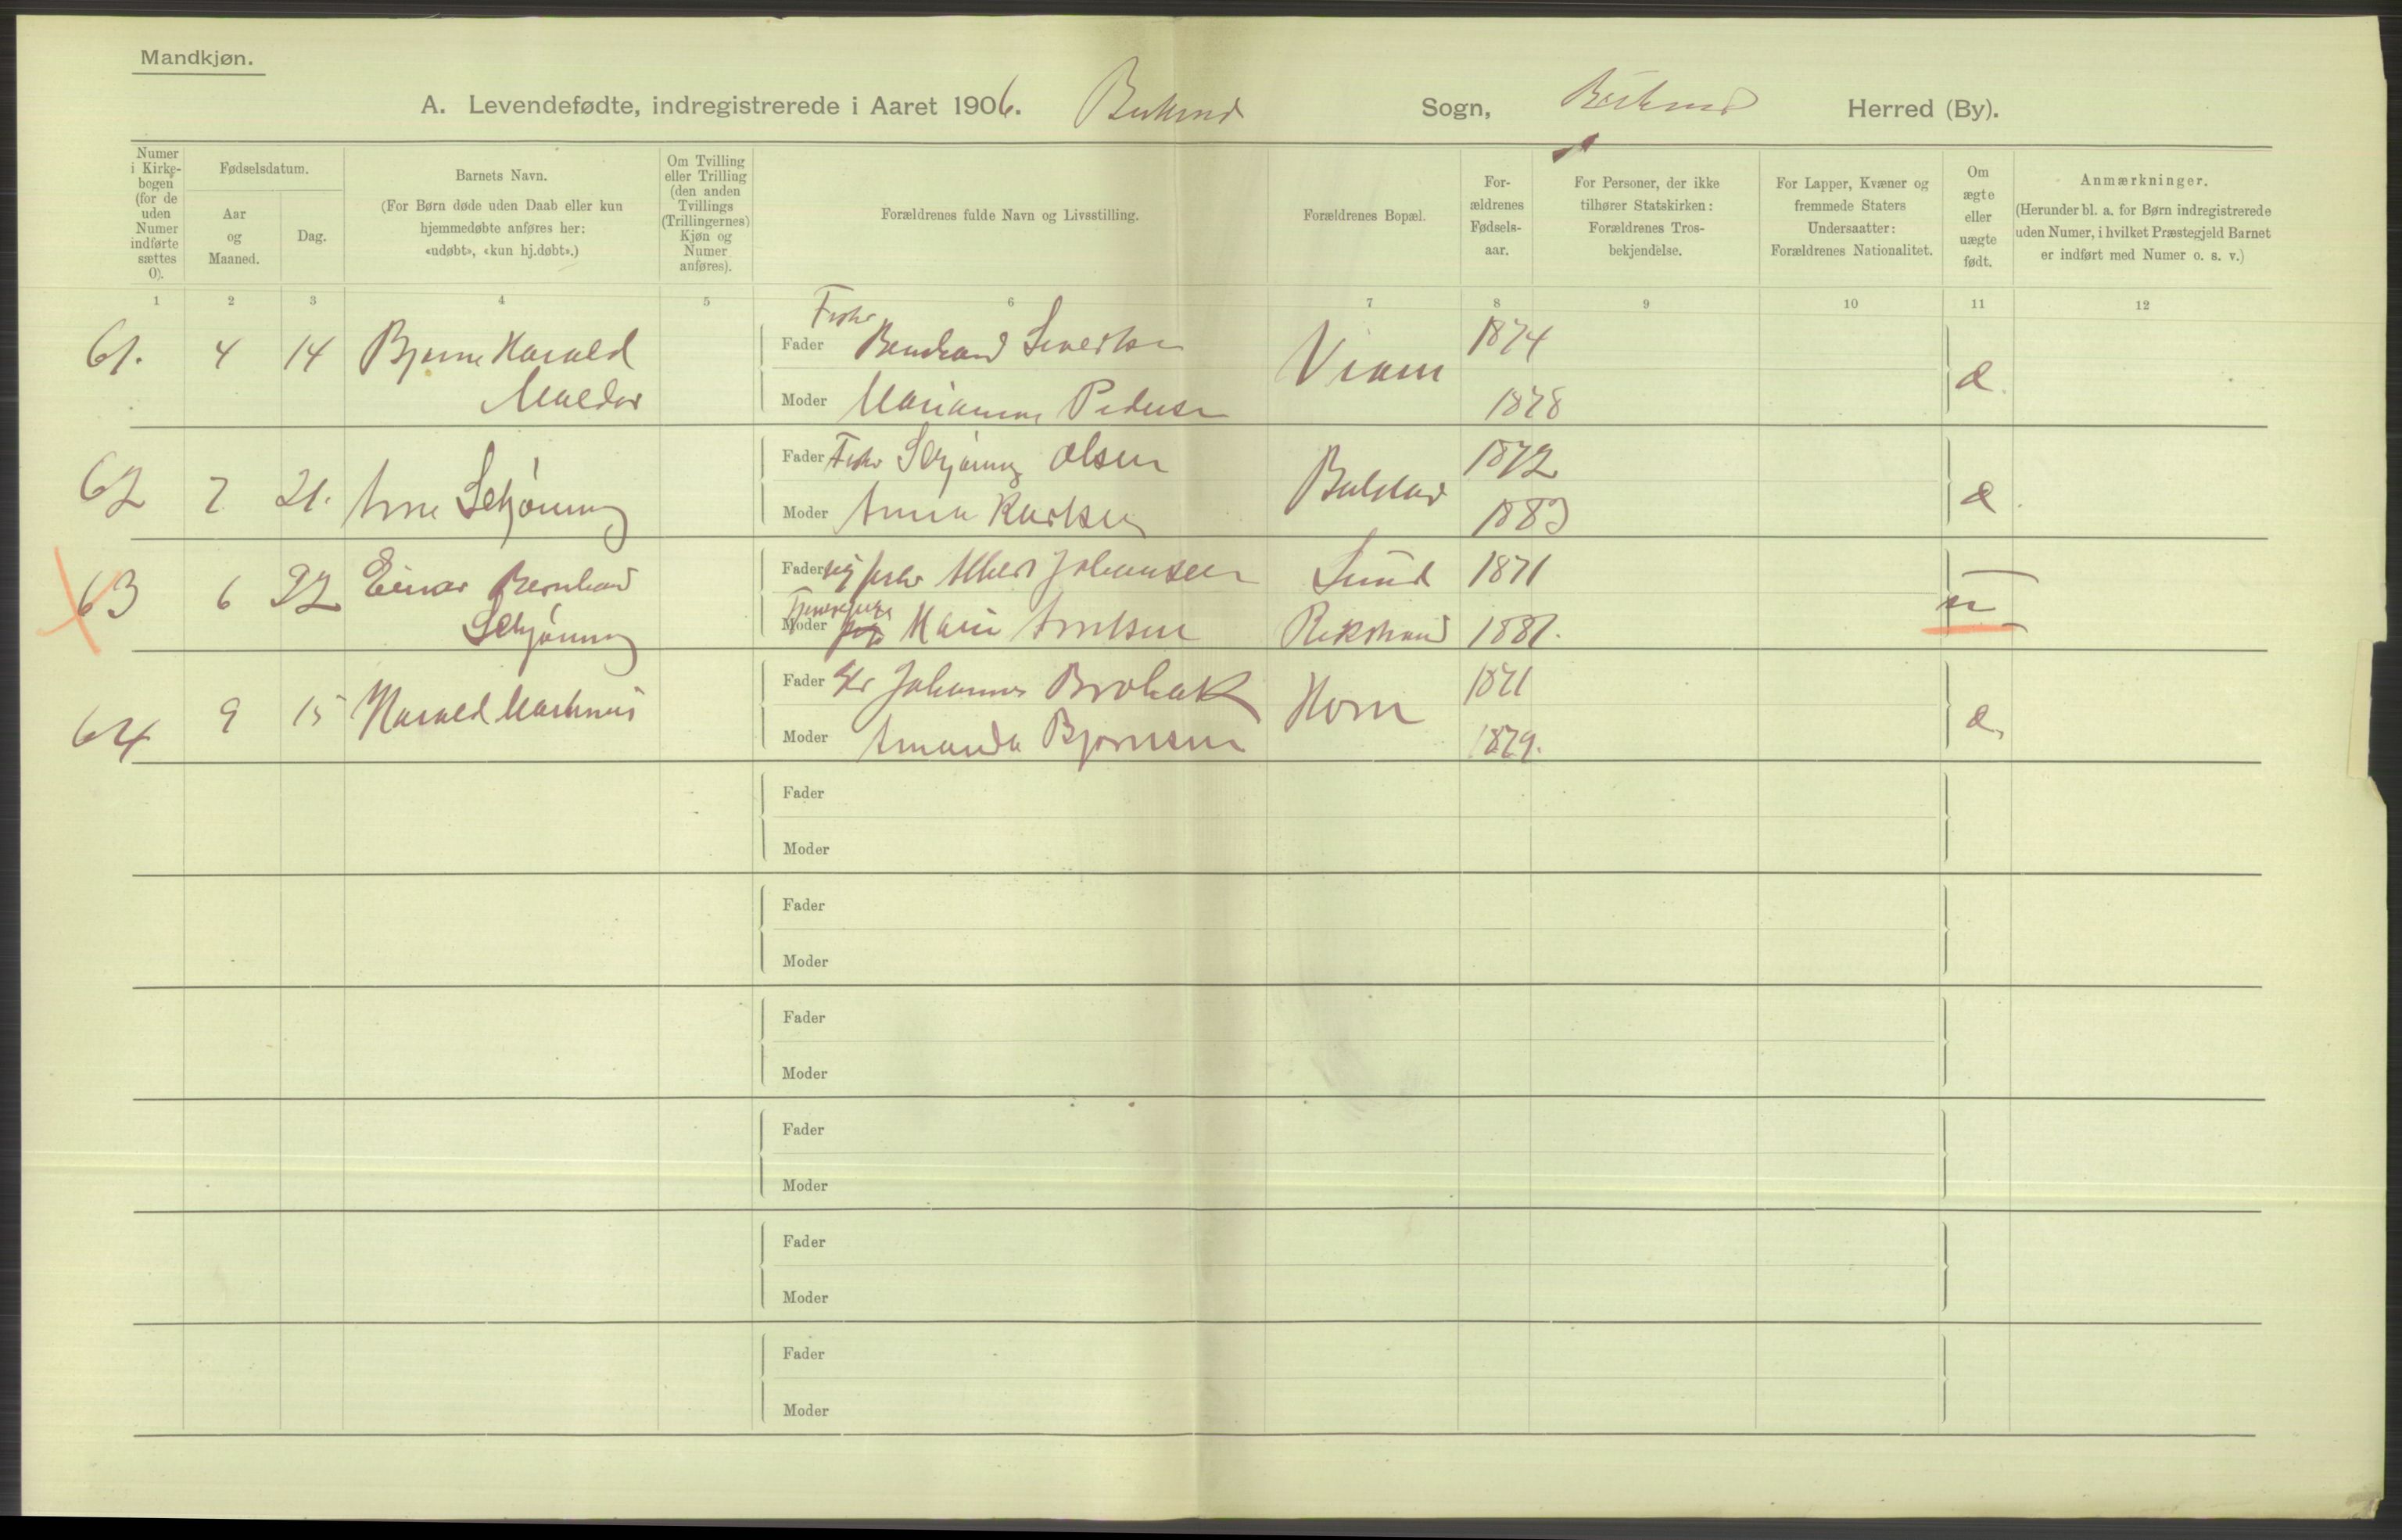 Mandkjøn.
A. Levendefødte, indregistrerede i Aaret 1906. Buksnes Sogn, Buksnes Herred (By).
Numer
i Kirke-
bogen
(for de
uden
Numer
indførte
sættes
0).
Fødselsdatum.
Aar
og
Maaned.
Dag.
Barnets Navn.
(For Børn døde uden Daab eller kun
hjemmedøbte anføres her:
«udøbt», «kun hj.døbt».)
Om Tvilling
eller Trilling
(den anden
Tvillings
(Trillingernes)
Kjøn og
Numer
anføres).
Forældrenes fulde Navn og Livsstilling.
Forældrenes Bopæl.
For-
ældrenes
Fødsels-
aar.
For Personer, der ikke
tilhører Statskirken:
Forældrenes Tros-
bekjendelse.
For Lapper, Kvæner og
fremmede Staters
Undersaatter:
Forældrenes Nationalitet.
Om
ægte
eller
uægte
født.
Anmærkninger.
(Herunder bl. a. for Børn indregistrerede
uden Numer, i hvilket Præstegjeld Barnet
er indført med Numer o. s. v.)
1 2 3 4 5 6 7 8 9 10 11 12
Fisker
61. 4 14 Bjarne Harald Fader Bernhard Sivertsen 1874
Moder Marianne Pedersen 1878
æ
62 7 21. Arne Schjønning Fader Fisker Schjønning Olsen Balstad 1872
Moder Anna Karlsen 1883
æ
63 6 22 Einar Bernhard Fader fisker Albert Johansen Sund 1871
Schjønning Moder Marie Arntsen 1881.
64 9 15 Harald Martinus Fader Johannes Horn 1871
Moder Amanda Bjørnsen 1879.
æ
Fader
Moder
Fader
Moder
Fader
Moder
Fader
Moder
Fader
Moder
Fader
Moder